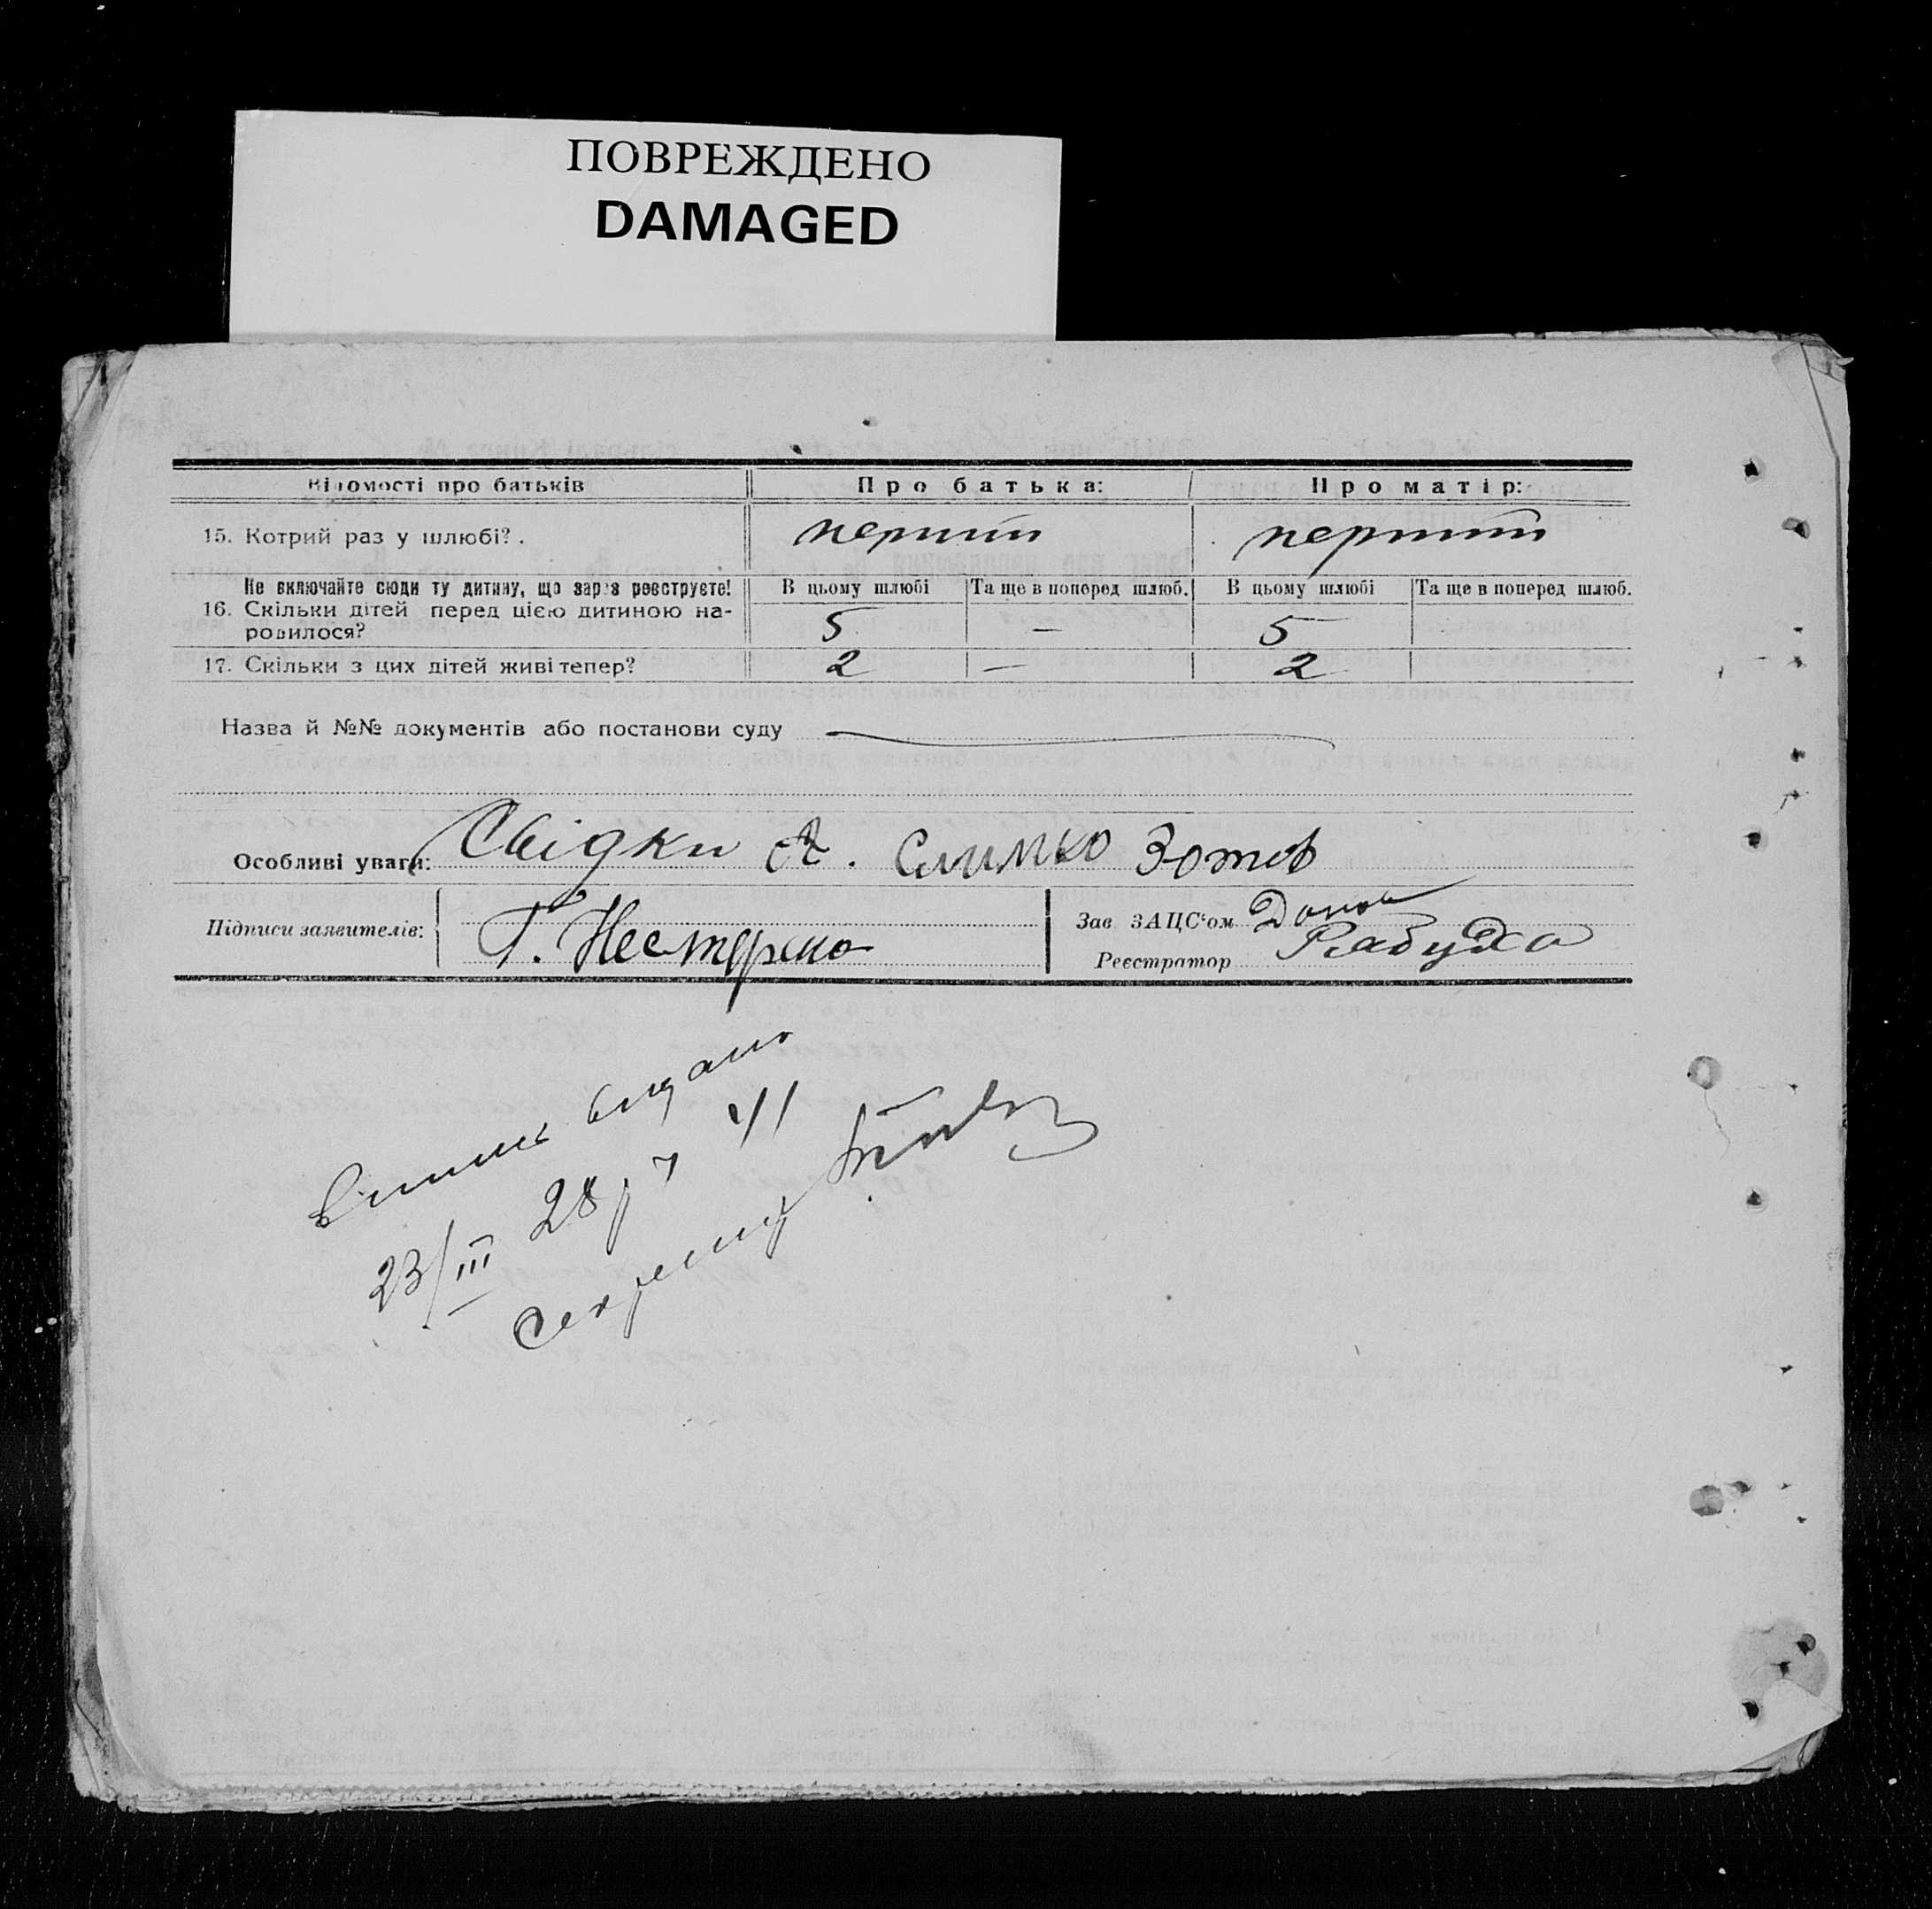 ПОВРЕЖДЕНО
DAMAGED
Відомості про батьків
Про батька:
Про матір:
15. Котрий раз у шлюбі?.
перший
перший
Не включайте сюди ту дитину, що зараз реєструєте!
В цьому шлюбі
Та ще в поперед шлюб.
В цьому шлюбі
Та ще в поперед шлюб.
16. Скільки дітей перед цією дитиною на-
родилося?
5
—
5
17. Скільки з цих дітей живі тепер?
2
—
2
Назва й №№ документів або постанови суду
Особливі уваги:
Свідки А. Слимко Зотов
Підписи заявителів:
Г. Нестеренко
Зав ЗАЦС'ом
Реєстратор
видано
23/III 28 р
Секретар